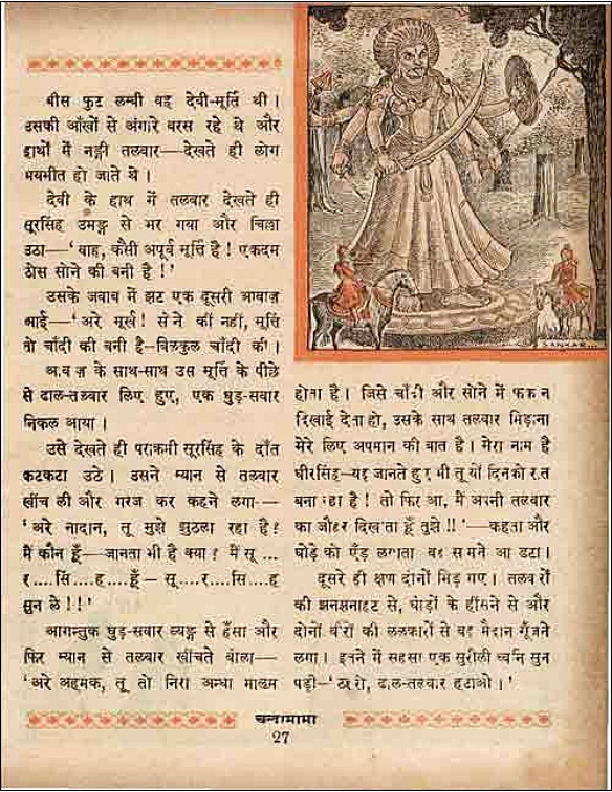 बीस फुट लम्बी वह देवी-मूर्ति थी ।
उसकी आँखों से अंगारे बरस रहे थे और
हाथों में नङ्गी तलवार—देखते ही लोग
भयभीत हो जाते थे ।
देवी के हाथ में तलवार देखते ही
सूरसिंह उमङ्ग से भर गया और चिल्ला
उठा—' वाह, कैसी अपूर्व मूर्ति है ! एकदम
ठोस सोने की बनी है !'
उसके जवाब में झट एक दूसरी आवाज़
आई—' अरे मूर्ख ! सोने की नहीं, मूर्ति
तो चाँदी की बनी है–बिलकुल चाँदी की ।
आवाज़ के साथ-साथ उस मूर्ति के पीछे
से ढाल-तलवार लिए हुए, एक घुड़-सवार
निकल आया ।
उसे देखते ही पराक्रमी सूरसिंह के दाँत
कटकटा उठे । उसने म्यान से तलवार
खींच ली और गरज कर कहने लगा—
' अरे नादान, तू मुझे झुठला रहा है ?
मैं कौन हूँ—जानता भी है क्या ? मैं सू ...
र .... सिं .... ह .... हूँ – सू .... र .... सिं .... ह
सुन ले ! ! !'
आगन्तुक घुड़-सवार व्यङ्ग से हँसा और
फिर म्यान से तलवार खींचते बोला—
' अरे अहमक, तू तो निरा अन्धा मालूम
SANKAR
होता है । जिसे चाँदी और सोने में फरक न
दिखाई देता हो, उसके साथ तलवार भिड़ाना
मेरे लिए अपमान की बात है । मेरा नाम है
धीरसिंह–यह जानते हुए भी तू यों दिन को रात
बना रहा है ! तो फिर आ, मैं अपनी तलवार
का जौहर दिखाता हूँ तुझे !! '—कहता और
घोड़े को एँड़ लगाता वह सामने आ डटा ।
दूसरे ही क्षण दोनों भिड़ गए । तलवारों
की झनझनाहट से, घोड़ों के हींसने से और
दोनों वीरों की ललकारों से वह मैदान गूँजने
लगा । इतने में सहसा एक सुरीली ध्वनि सुन
पड़ी—' ठहरो, ढाल-तलवार हटाओ । '
चन्दामामा
27